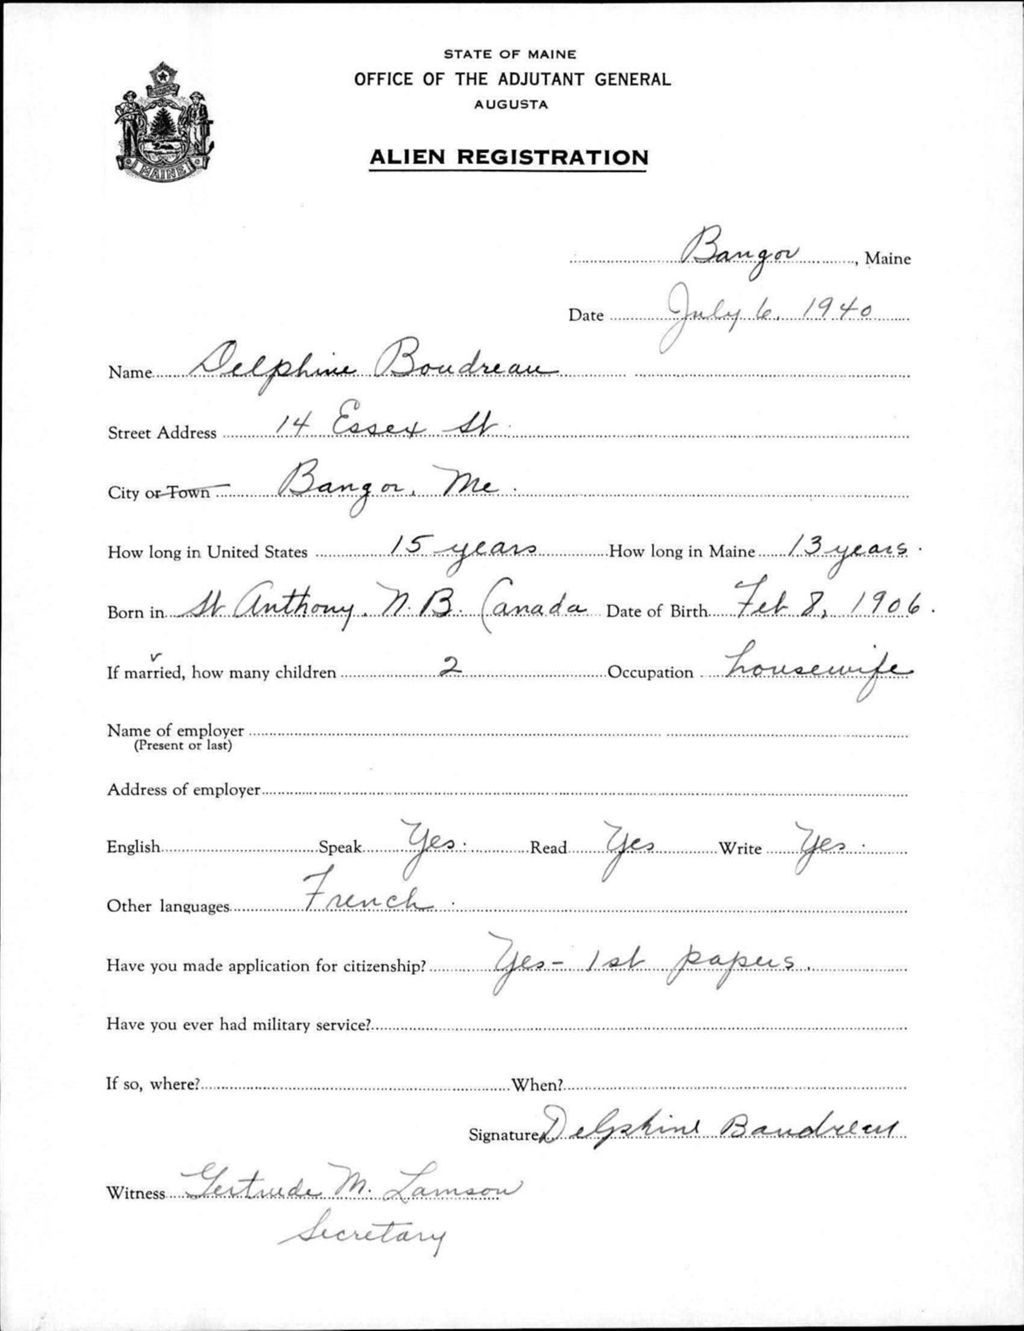 STATE OF MAINE
OFFICE OF THE ADJUTANT GENERAL
AUGUSTA
ALIEN REGISTRATION
MAINE
Bangor, Maine
Date July 6, 1940
Name Delphine Boudreau
Street Address 14 Essex St.
City or Town Bangor, Me.
How long in United States 15 years How long in Maine 13 years.
Born in St Anthony, N.B. Canada Date of Birth Feb 8, 1906.
If married, how many children 2 Occupation housewife
Name of employer
(Present or last)
Address of employer
English Speak Yes. Read Yes Write Yes.
Other languages French.
Have you made application for citizenship? Yes - 1st papers.
Have you ever had military service?
If so, where? When?
Signature Delphine Boudreau
Witness Gertrude M. Lamson
Secretary